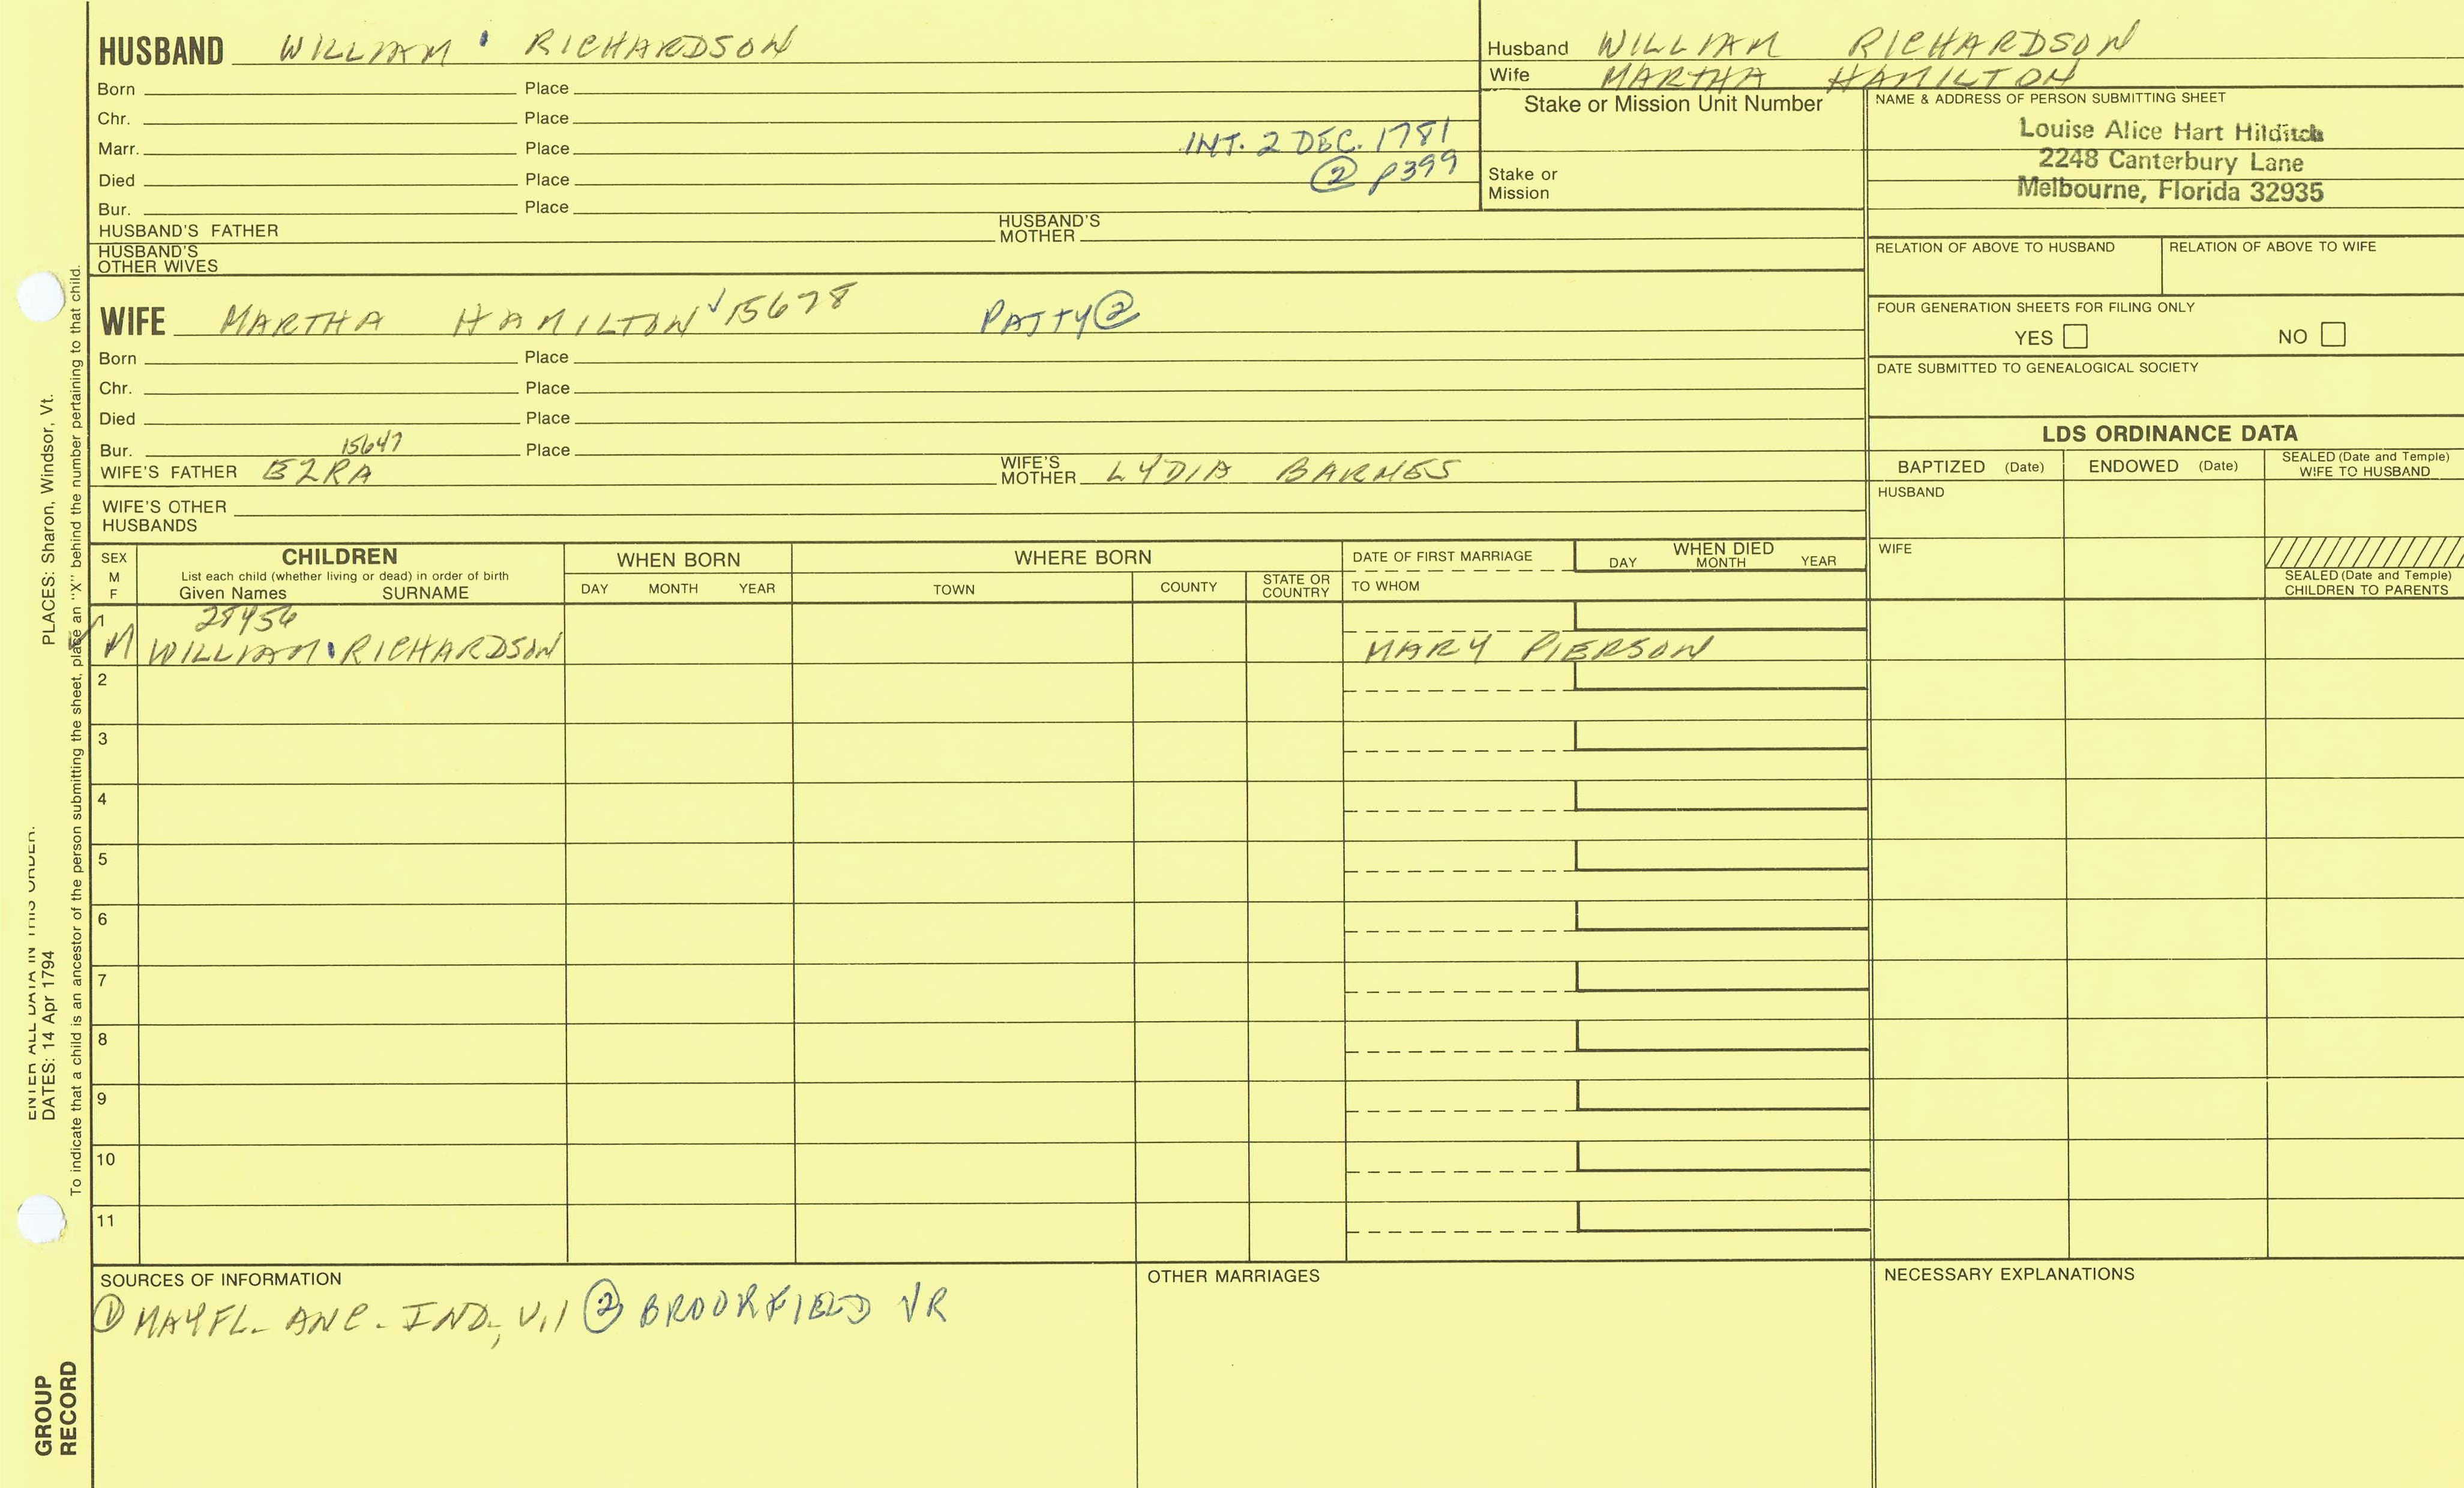 HUSBAND WILLIAM RICHARDSON
Born Place
Chr. Place
Marr. Place INT. 2 DEC. 1781
Died Place ② P399
Bur. Place
HUSBAND'S FATHER HUSBAND'S MOTHER
HUSBAND'S OTHER WIVES
Husband WILLIAM RICHARDSON
Wife MARTHA HAMILTON
Stake or Mission Unit Number
Stake or Mission
NAME & ADDRESS OF PERSON SUBMITTING SHEET
Louise Alice Hart Hilditch
2248 Canterbury Lane
Melbourne, Florida 32935
RELATION OF ABOVE TO HUSBAND RELATION OF ABOVE TO WIFE
FOUR GENERATION SHEETS FOR FILING ONLY
YES NO
DATE SUBMITTED TO GENEALOGICAL SOCIETY
WIFE MARTHA HAMILTON ✓15678 PATTY ②
Born Place
Chr. Place
Died Place
Bur. Place
15647
WIFE'S FATHER EZRA WIFE'S MOTHER LYDIA BARNES
WIFE'S OTHER HUSBANDS
LDS ORDINANCE DATA
BAPTIZED (Date) ENDOWED (Date) SEALED (Date and Temple) WIFE TO HUSBAND
HUSBAND
WIFE
SEALED (Date and Temple) CHILDREN TO PARENTS
SEX M F
CHILDREN
List each child (whether living or dead) in order of birth
Given Names SURNAME
WHEN BORN
DAY MONTH YEAR
WHERE BORN
TOWN COUNTY STATE OR COUNTRY
DATE OF FIRST MARRIAGE
TO WHOM
WHEN DIED
DAY MONTH YEAR
1 28456
M WILLIAM RICHARDSON MARY PIERSON
2
3
4
5
6
7
8
9
10
11
SOURCES OF INFORMATION
① MAYFL. ANC. IND., V.1 ② BROOKFIELD VR
OTHER MARRIAGES
NECESSARY EXPLANATIONS
ENTER ALL DATA IN THIS ORDER:
DATES: 14 Apr 1794 PLACES: Sharon, Windsor, Vt.
To indicate that a child is an ancestor of the person submitting the sheet, place an "X" behind the number pertaining to that child.
GROUP
RECORD